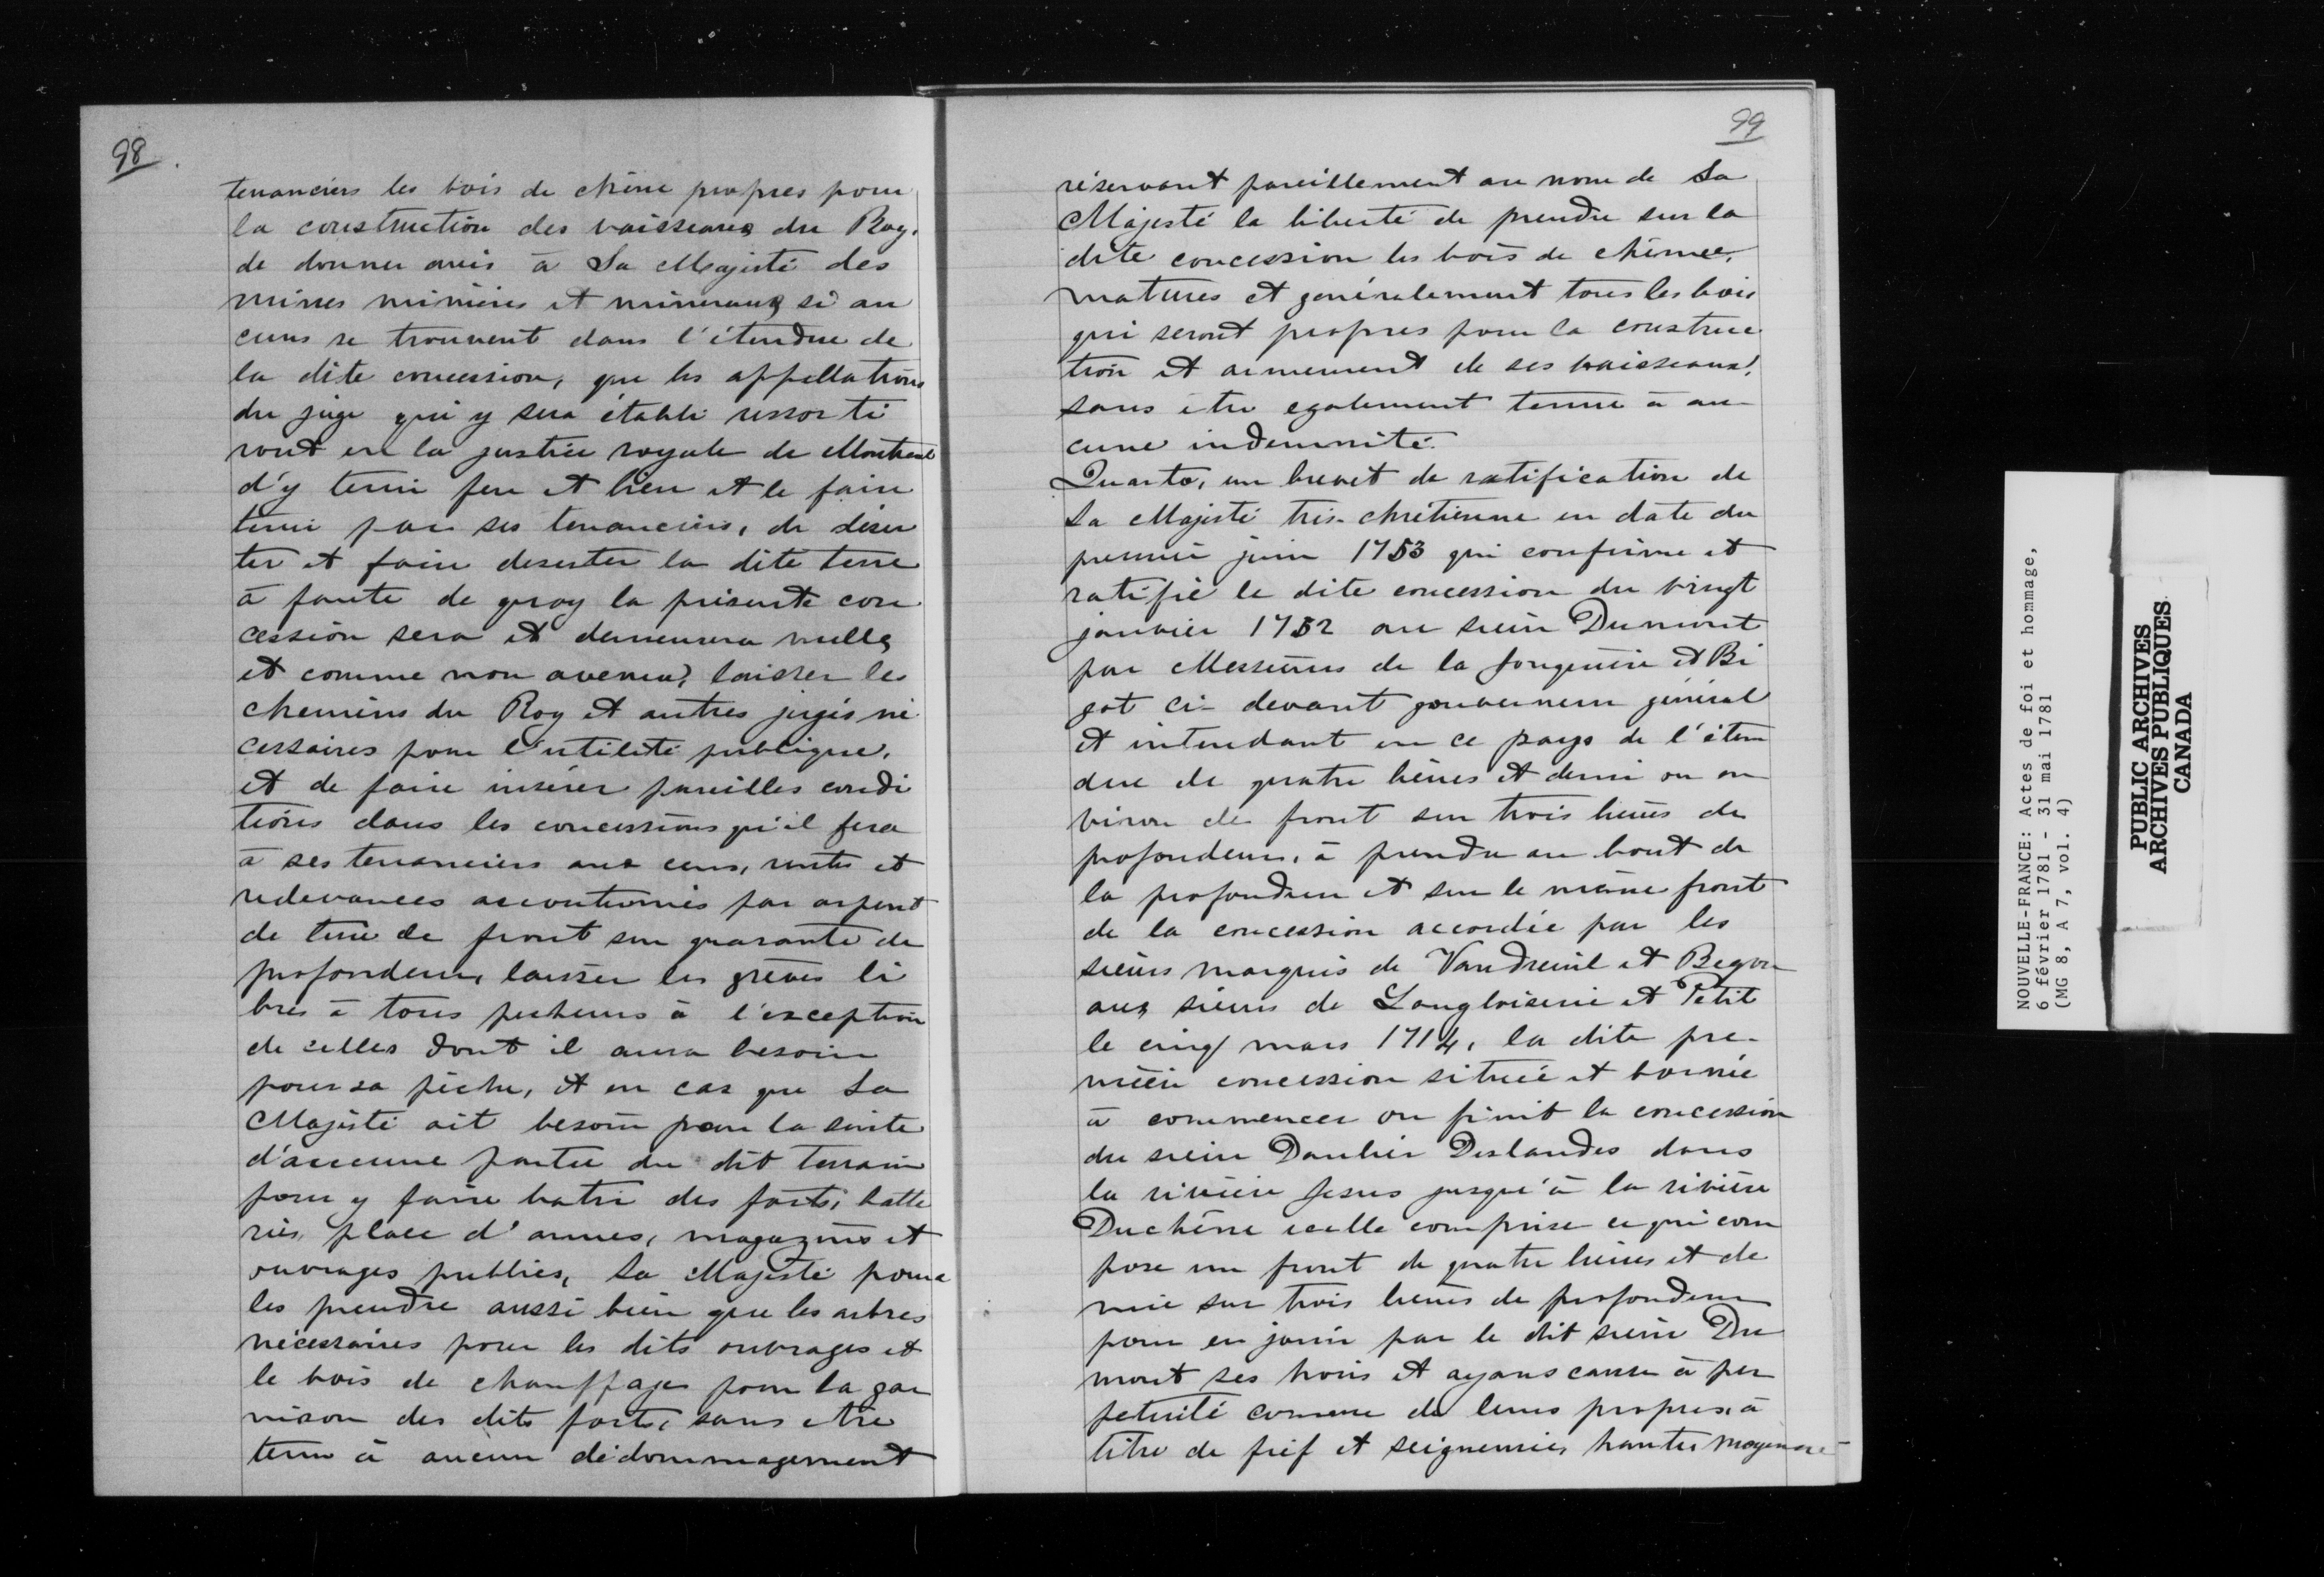 98
tenanciers les bois de chêne propres pour
la construction des vaisseaux du Roy,
de donner avis à Sa Majesté des
mines minières et mineraux si au
cuns se trouvent dans l'étendue de
la dite concession, que les appellations
du juge qui y sera établi ressorti
ront en la justice royale de Montreal
d'y tenir feu et lieu et le faire
tenir par ses tenanciers, de déser
ter et faire deserter la dite terre
à faute de quoy la présente con
cession sera et demeurera nulle
et comme non avenue, laisser les
chemins du Roy et autres jugés né
cessaires pour l'utilité publique,
et de faire insérer pareilles condi
tions dans les concessions qu'il fera
à ses tenanciers aux cens, rentes et
redevances accoutumés par arpent
de terre de front sur quarante de
profondeur, laisser les grèves li
bres à tous pecheurs à l'exception
de celles dont il aura besoin
pour sa pêche, et en cas que Sa
Majesté ait besoin pour la suite
d'aucune partie du dit terrain
pour y faire batir des forts, batte
ries, place d'armes, magazins et
ouvrages publics, Sa Majesté poura
les prendre aussi bien que les arbres
nécessaires pour les dits ouvrages et
le bois de chauffage pour la gar
nison des dits forts, sans être
tenu à aucun dédommagement
99
réservant pareillement au nom de Sa
Majesté la liberté de prendre sur la
dite concession les bois de chênes,
matures et généralement tous les bois
qui seront propres pour la construc
tion et armement de ses vaisseaux,
sans être egalement tenue à au
cune indemnité.
Quarto, un brevet de ratification de
Sa Majesté très-chrétienne en date du
premier juin 1753 qui confirme et
ratifie le dite concession du vingt
janvier 1752 au sieur Dumont
par Messieurs de la Jonquière et Bi
got ci-devant gouverneur général
et intendant en ce pays de l'éten
due de quatre lieues et demi ou en
viron de front sur trois lieues de
profondeur, à prendre au bout de
la profondeur et sur le même front
de la concession accordée par les
sieurs marquis de Vaudreuil et Begon
aux sieurs de Langloiserie et Petit
le cinq mars 1714, la dite pre-
mière concession située et bornée
à commencer ou finit la concession
du sieur Daulier Deslandes dans
la rivière Jesus jusqu'à la rivière
Duchêne icelle comprise ce qui com
pose un front de quatre lieues et de
mie sur trois lieues de profondeur
pour en jouir par le dit sieur Du
mont ses hoirs et ayans cause à per
petuité comme de leurs propres, à
titre de fief et seigneurie, haute, moyenne
NOUVELLE-FRANCE: Actes de foi et hommage,
6 février 1781 - 31 mai 1781
(MG 8, A 7, vol. 4)
PUBLIC ARCHIVES
ARCHIVES PUBLIQUES
CANADA